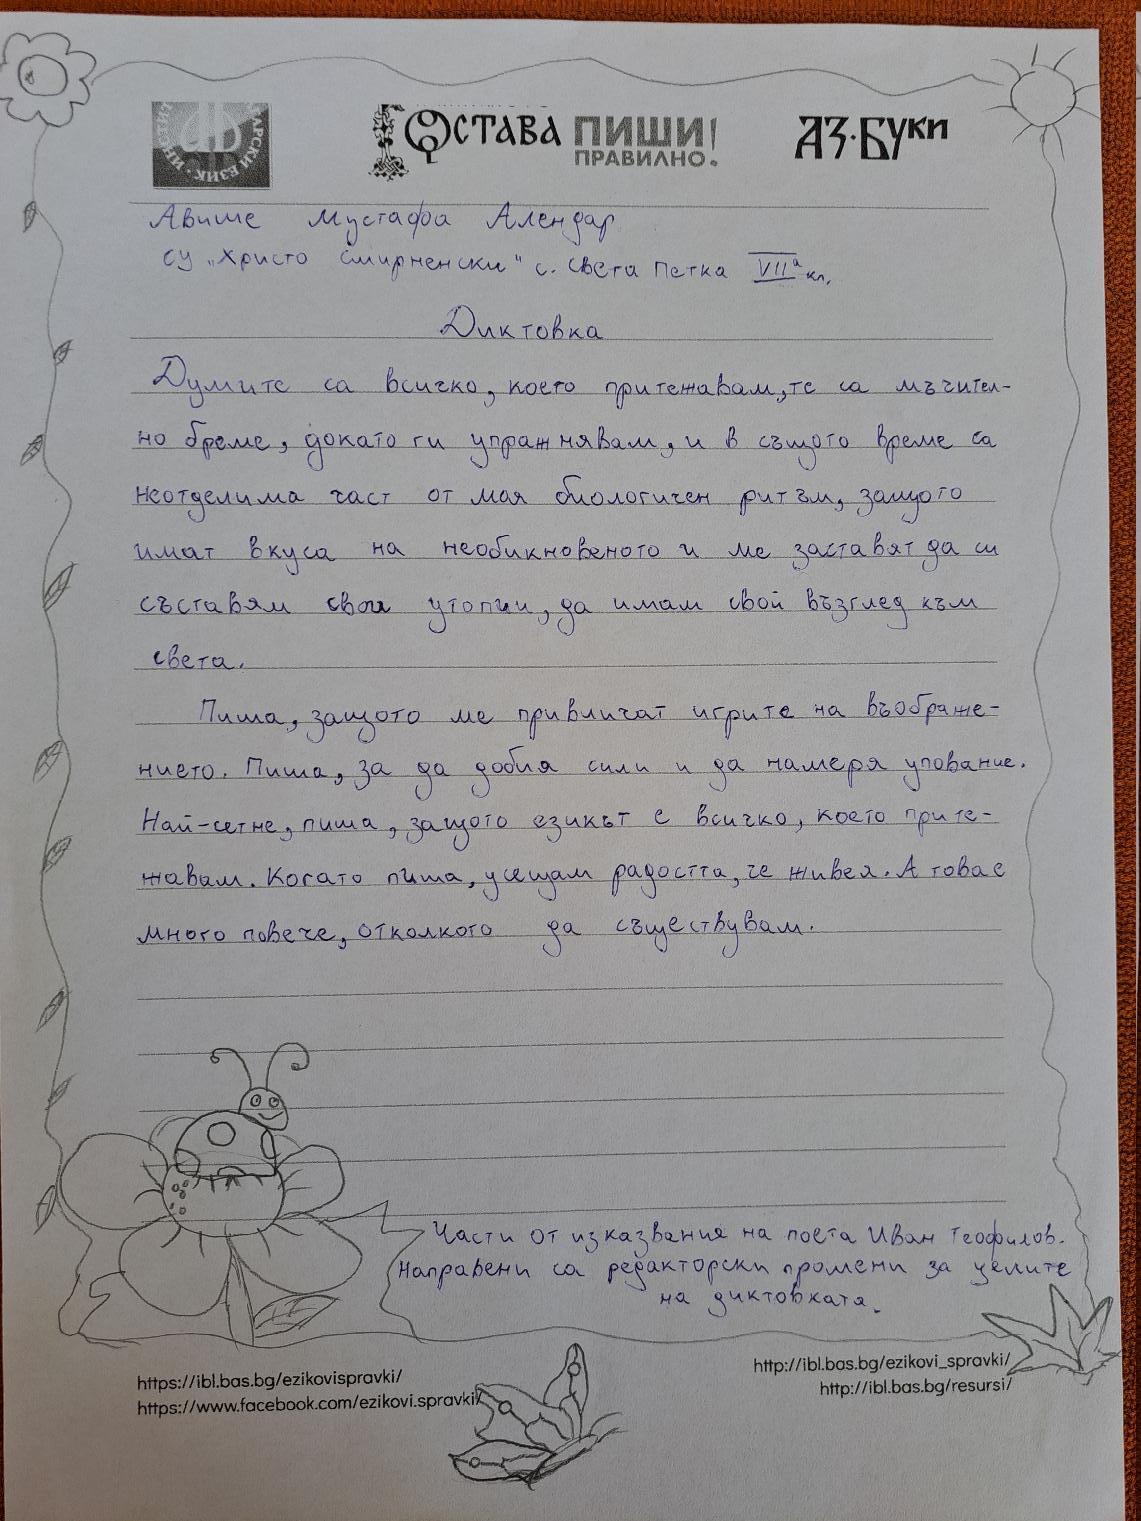 ОСТАВА ПИШИ!
ПРАВИЛНО.
АЗ·БУКИ
Авише Мустафа Алендар
СУ „Христо Смирненски" с. Света Петка VIIа кл.
Диктовка
Думите са всичко, което притежавам, те са мъчител-
но бреме, докато ги упражнявам, и в същото време са
неотделима част от моя биологичен ритъм, защото
имат вкуса на необикновеното и ме заставят да си
съставям свои утопии, да имам свой възглед към
света.
Пиша, защото ме привличат игрите на въображе-
нието. Пиша, за да добия сили и да намеря упование.
Най-сетне, пиша, защото езикът е всичко, което прите-
жавам. Когато пиша, усещам радостта, че живея. А това е
много повече, отколкото да съществувам.
Части от изказвания на поета Иван Теофилов.
Направени са редакторски промени за целите
на диктовката.
https://ibl.bas.bg/ezikovispravki/
https://www.facebook.com/ezikovi.spravki/
http://ibl.bas.bg/ezikovi_spravki/
http://ibl.bas.bg/resursi/